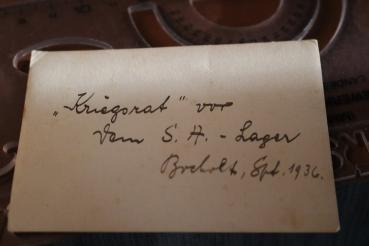 „Kriegsrat" vor
dem S. A. - Lager
Bocholt, Spt. 1936.